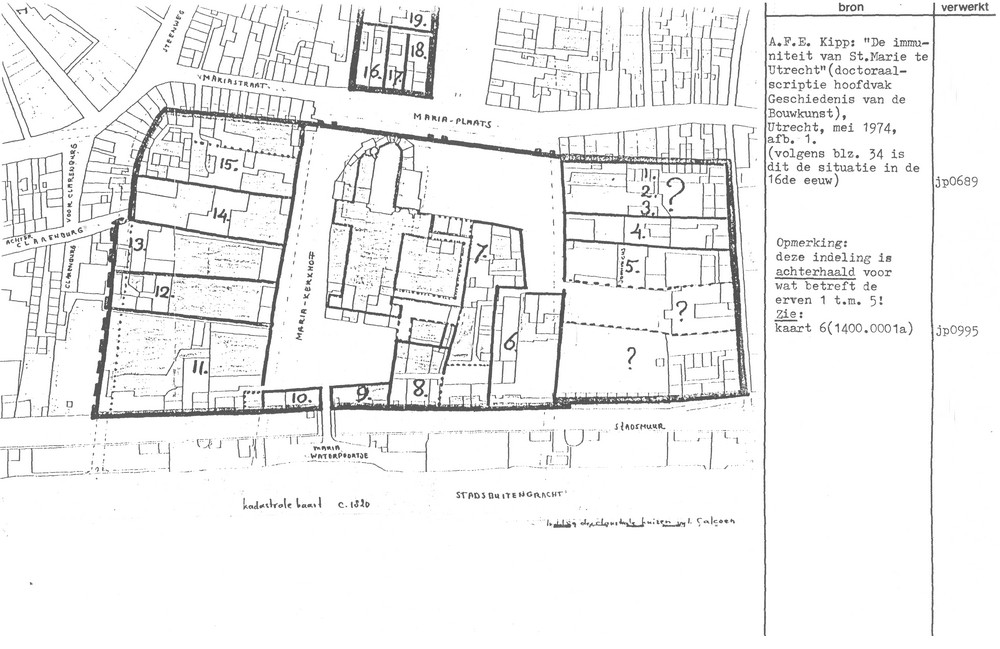 bron
verwerkt
A.F.E. Kipp: "De immu-
niteit van St.Marie te
Utrecht"(doctoraal-
scriptie hoofdvak
Geschiedenis van de
Bouwkunst),
Utrecht, mei 1974,
afb. 1.
(volgens blz. 34 is
dit de situatie in de
16de eeuw)
jp0689
Opmerking:
deze indeling is
achterhaald voor
wat betreft de
erven 1 t.m. 5!
Zie:
kaart 6(1400.0001a)
jp0995
STEENWEG
19.
18.
16.
17.
MARIASTRAAT
MARIA-PLAATS
VOOR CLARENBURG
ACHTER
CLARENBURG
CLARENBURG
MARIA-KERKHOFF
15.
14.
13.
12.
11.
10.
9.
8.
7.
6.
1.
2.
3.
?
4.
5.
?
?
STADSMUUR
MARIA
WATERPOORTJE
STADSBUITENGRACHT
kadastrale kaart c. 1820